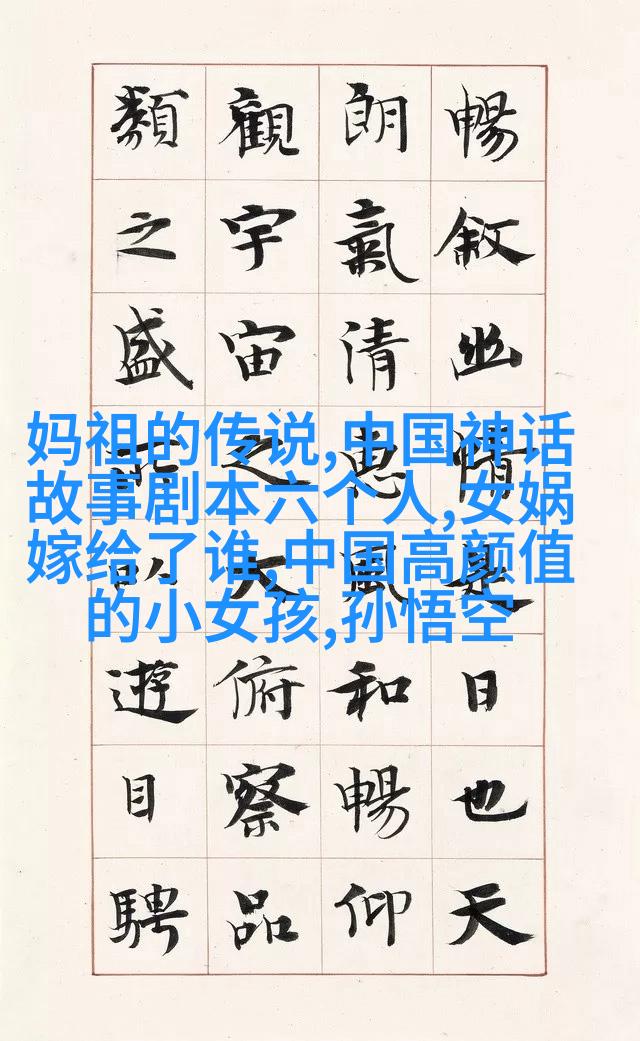 暢敘幽情是日也天
朗氣清惠風和暢仰
觀宇宙之大俯察品
類之盛所以遊目騁
妈祖的传说,中国神话
故事剧本六个人,女娲
嫁给了谁,中国高颜值
的小女孩,孙悟空